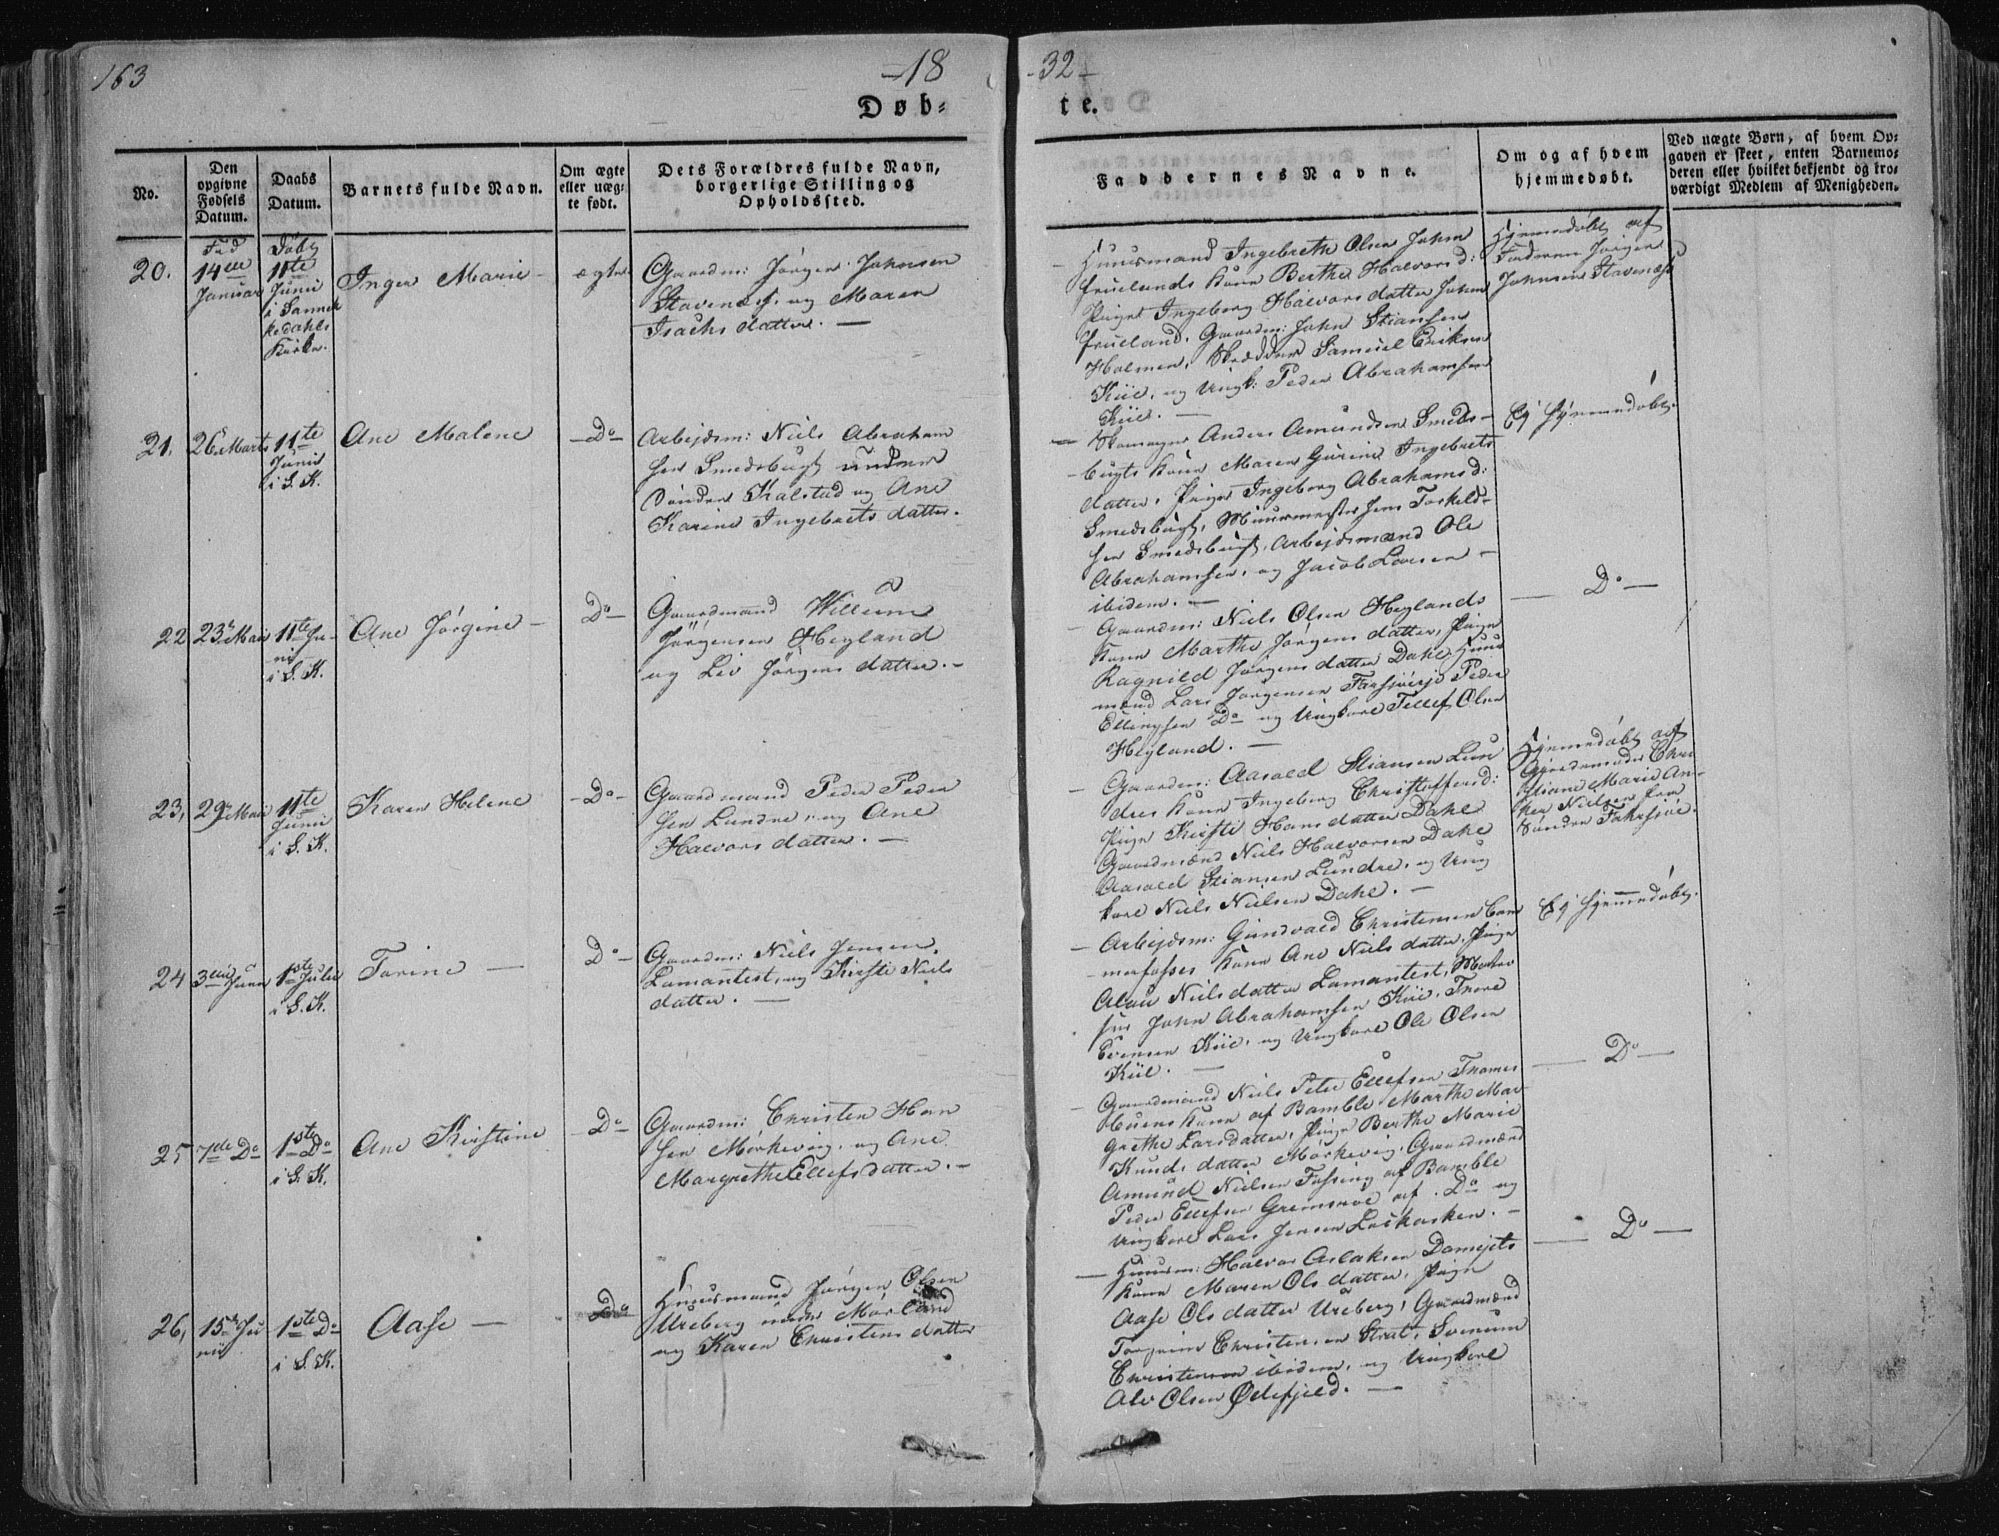 163
-18
-32-
Døb-
te.
No.
Den opgivne Fødsels Datum.
Daabs Datum.
Barnets fulde Navn.
Om ægte eller uæg-te født.
Dets Forældres fulde Navn, borgerlige Stilling og Opholdssted.
Faddernes Navne.
Om og af hvem hjemmedøbt.
Ved uægte Børn, af hvem Op-gaven er skeet, enten Barnemo-deren eller hvilket bekjendt og tro-værdigt Medlem af Menigheden.
20.
Fød
14de
Januar
Døbt
11te
Junii
i Sannik
kedahls
Kirke.
Inger Marie -
ægte
Gaardm: Jørgen Johnsen
Stavenæs, og Maren
Isachs datter. -
Huusmand Ingebreth Olsen John
fruelands Kone Berthe Halvorsd:
Pige Ingeborg Halvors datter John
frueland. Gaardm: John Stiansen
Holmen, Skrædder Samuel Eriksen
Kiil, og Ungk: Peder Abrahamsen
Kiil. -
Hjemmedøbt af
Faderen Jørgen
Johnsen Stavenæs
21.
26 Marts
11te
Junii
i S. K.
Ane Malene
- Do -
Arbejdsm: Niels Abraham
sen Smedsbugt under
Søndre Kalstad og Ane
Karine Ingebrets datter. -
- Skomager Anders Amundsen Smeds-
bugts Kone Maren Gurine Ingebrets
datter, Pige Ingeborg Abrahamsd:
Smedsbugt, Muurmester Jens Torkeld-
sen Smedsbugt, Arbejdsmand Ole
Abrahamsen, og Jacob Larsen -
ibidem. -
Ej hjemmedøbt.
22
23de Maii
11te Ju-
nii
i S. K.
Ane Jørgine -
Do -
Gaardmand Willum
Jörgensen Heyland
og Liv Jørgens datter. -
- Gaardm: Niels Olsen Heylands
Kone Marthe Jørgens datter, Pige
Ragnild Jørgens datter Dahl, Huus
mand Lars Jørgensen Farsjø, Peder
Ellingsen Do og Ungkarl Tellef Olsen
Heyland. -
- Do -
23,
29de Maii
11te
Junii
i S. K.
Karen Helene
- Do -
Gaardmand Peder Peder
sen Lundre, og Ane
Halvors datter. -
- Gaardm: Aasold Stiansen Lun
dres Kone Ingeborg Christoffersd:
Pige Kirsti Hans datter Dahl
Gaardmænd Niels Halvorsen Dahl
Aasold Stiansen Lundre, og Ung
karl Niels Nielsen Dahl. -
Hjemmedøbt af
Gjordemoder Chri
stiane Marie An-
ker Nielsen fra
Søndre Fahrsjøe.
24
3die Juni
1ste Julii
i S. K.
Torine -
Do -
Gaardm: Niels Jensen
Lomantest, og Kirsti Niels
datter. -
- Arbejdsm: Gundvald Christensen Com
merfosses Kone Ane Niels datter, Pige
Alau Niels datter Lomantest,
John Abrahamsen Kiil, Thore
Evensen Kiil, og Ungkarl Ole Olsen
Kiil. -
Ej hjemmedøbt.
25
7de Do
1ste Do
i S. K.
Ane Kirstine
- Do -
Gaardm: Christen Han
sen Mörkevig, og Ane
Margrethe Ellefsdatter. -
- Gaardmand Niels Peter Ellefsen
Kone af Bamble Marthe Mar-
grethe Larsdatter, Pige Berthe Marie
Knuds datter Mörkevig, Gaardmænd
Amund Nielsen Fossing af Bamble
Peder Ellefsen af Do og
Ungkarl Lars Jensen. -
- Do -
26,
15de Ju
nii
1ste Do
i S. K.
Aase -
Do
Huusmand Jørgen Olsen
Ureberg under Mørland
og Karen Christens datter
- Huusm: Halvor Aslaksen
Kone Maren Ols datter, Pige
Aase Ols datter Ureberg, Gaardmænd
Torgrim Christensen Strat, Svenum
Christensen ibidem, og Ungkarl
Alv Olsen Ødefjeld. -
- Do -